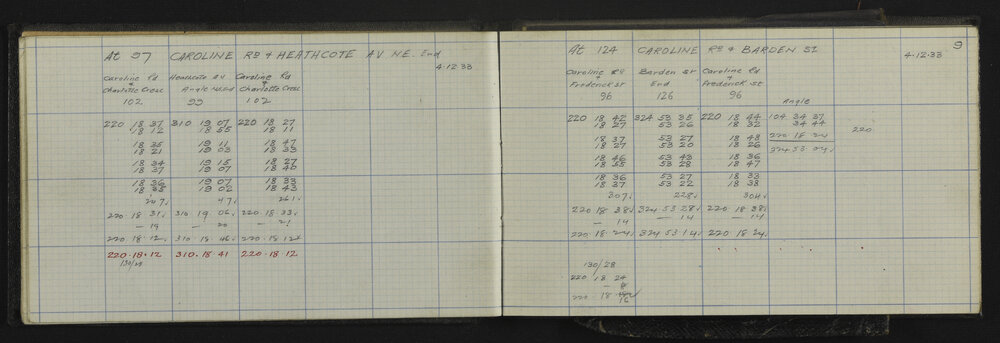 At 97 CAROLINE RD & HEATHCOTE AV N.E. End
4.12.33
Caroline Rd Heathcote AV Caroline Rd
& &
Charlotte Cresc Angle N.E. End Charlotte Cresc
102 99 102
220 18 37 310 19 07 220 18 27
18 12 18 55 18 11
18 35 19 11 18 47
18 21 19 03 18 33
18 34 19 15 18 27
18 37 19 07 18 40
18 36 19 07 18 33
18 35 19 02 18 43
247 47 261
220. 18. 31 310 19 06 220. 18. 33
— 19 — 20 — 21
220. 18. 12 310. 18. 46 220. 18. 12
220. 18. 12 310. 18. 41 220. 18. 12
130/28
9
At 124 CAROLINE RD & BARDEN ST
4.12.33
Caroline RD Barden St Caroline Rd
& &
Frederick St End Frederick St
96 126 96
Angle
220 18 42 324 53 35 220 18 44 104 34 37
18 27 53 26 18 32 34 44
18 37 53 27 18 48 220 18 24
18 27 53 20 18 26 324 53 04
220
18 46 53 43 18 36
18 55 53 28 18 47
18 36 53 27 18 33
18 37 53 22 18 38
307 228 304
220. 18. 38 324 53. 28 220. 18. 38
— 14 — 14 — 14
220. 18. 24 324. 53. 14 220. 18. 24
130/28
220 18 24
— 8
220 18
16